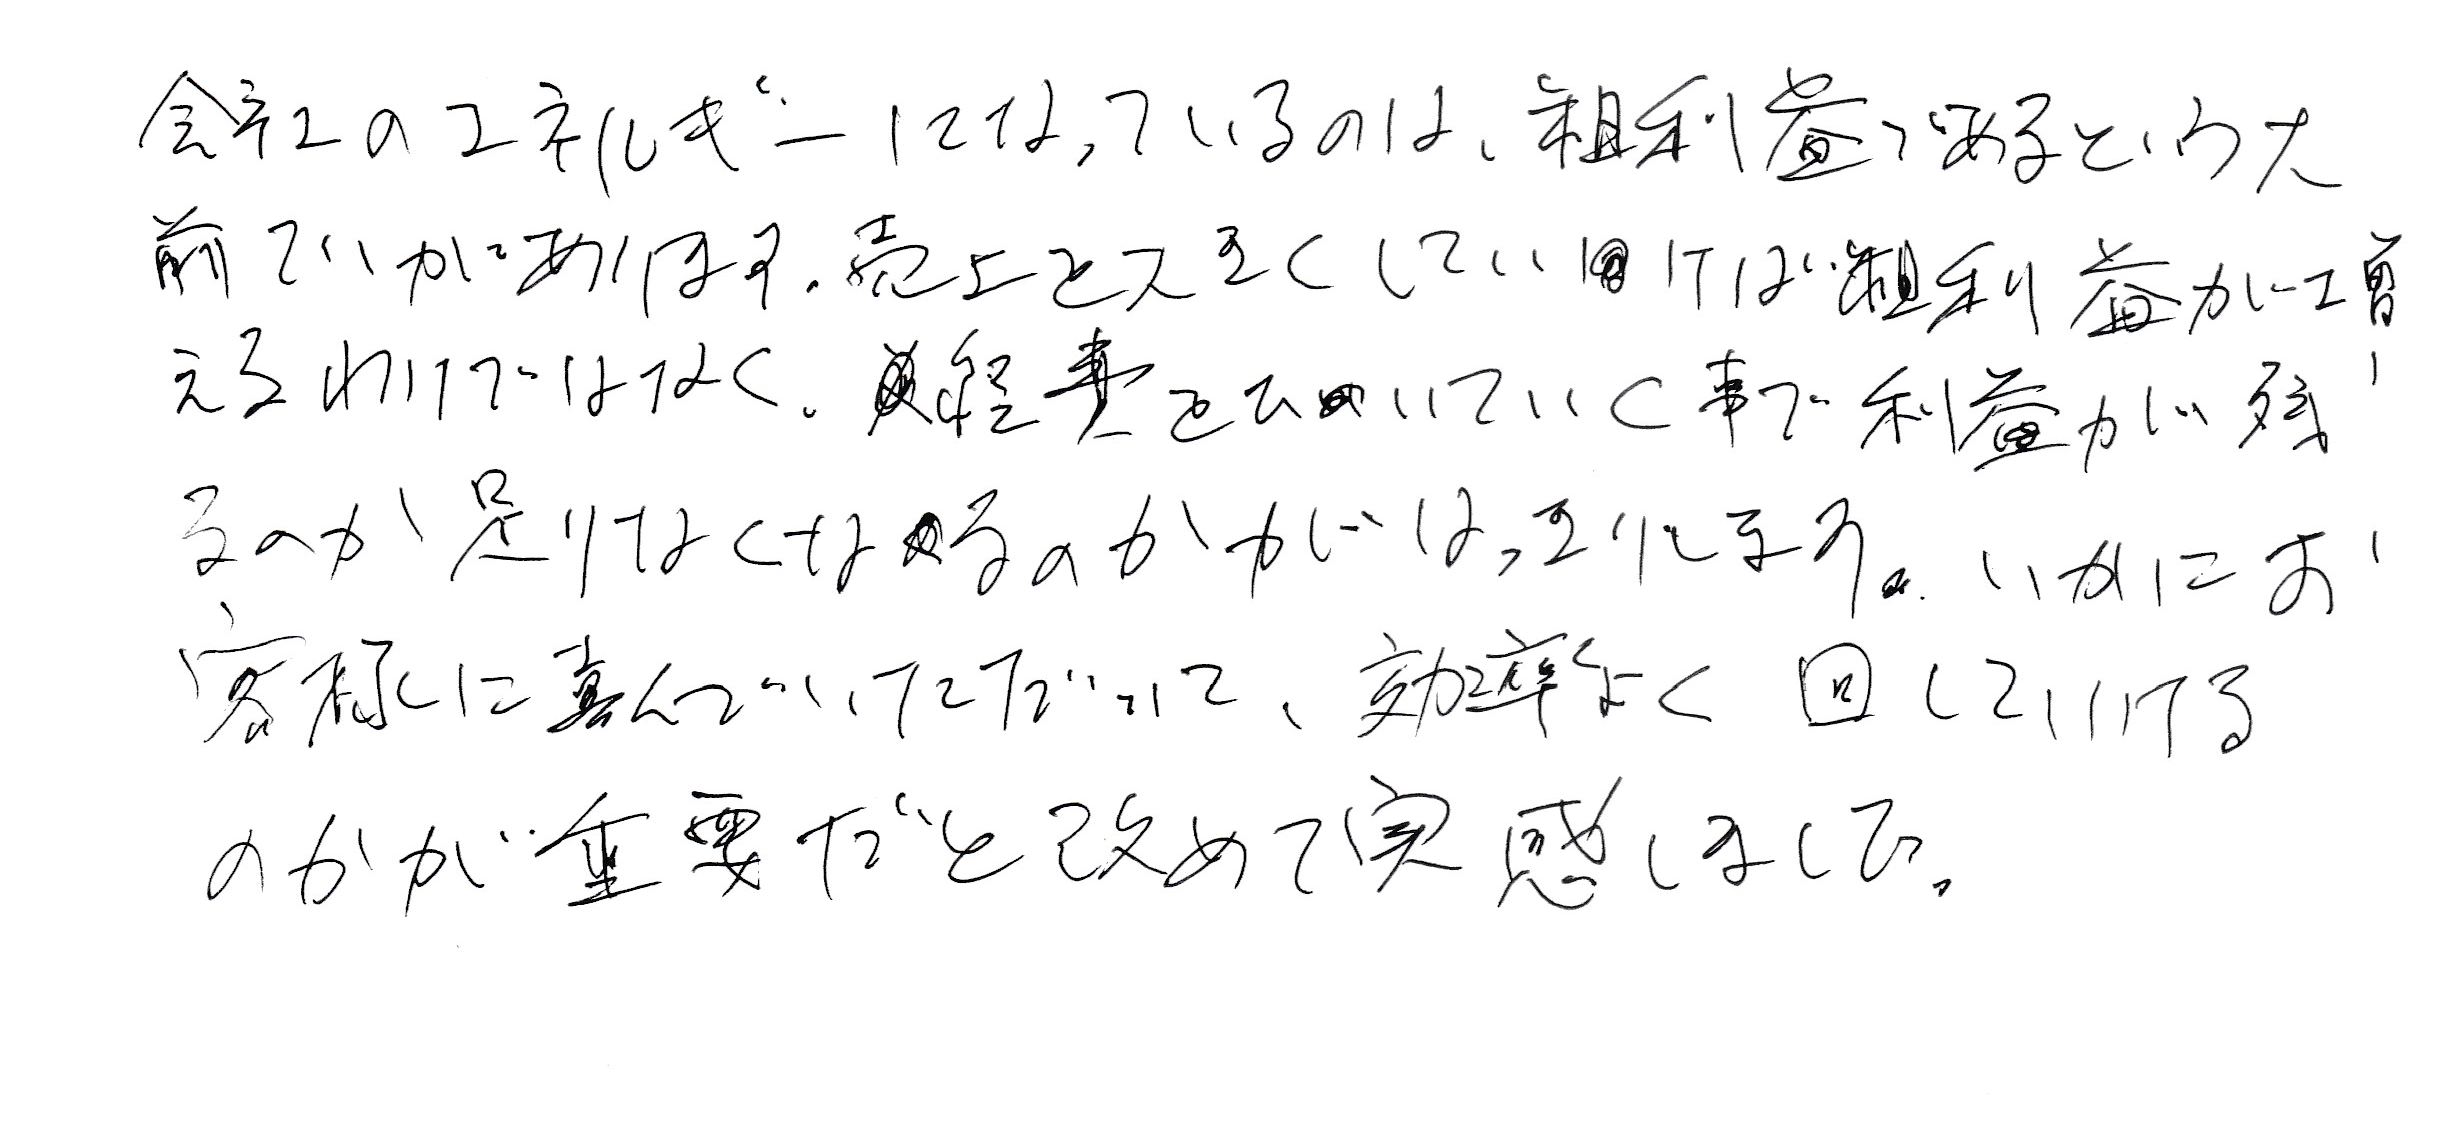 会社のエネルギーになっているのは、粗利益であるという大
前ていがあります。売上を大きくしていけば粗利益が増
えるわけではなく、経費をひいていく事で利益が残
るのか足りなくなるのかがはっきりします。いかにお
客様に喜んでいただいて、効率よく回していける
のかが重要だと改めて実感しました。